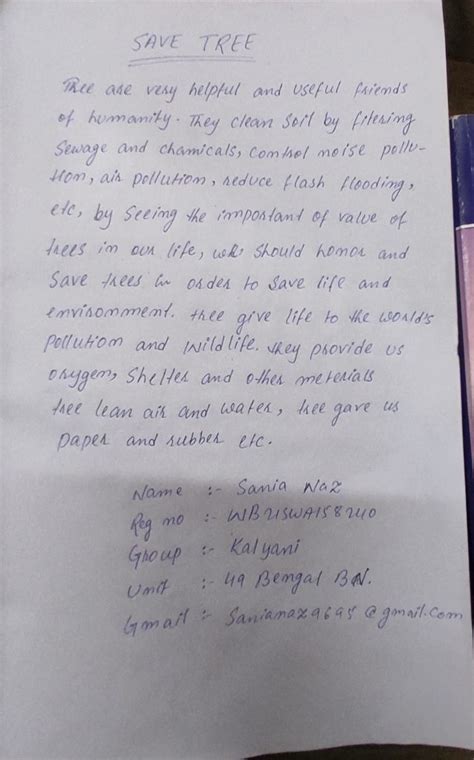 SAVE TREE
Tree are very helpful and useful friends
of humanity. They clean soil by filering
Sewage and chamicals, control noise pollu-
tion, air pollution, reduce flash flooding,
etc, by seeing the important of value of
trees in our life, we should honor and
save trees in order to save life and
environment. tree give life to the world's
pollution and wildlife. they provide us
oxygen, shelter and other meterials
tree lean air and water, tree gave us
paper and rubber etc.
Name :- Sania Naz
Reg no :- WB21SWA158240
Group :- Kalyani
Unit :- 49 Bengal BN.
Gmail :- Sanianaz9695@gmail.com